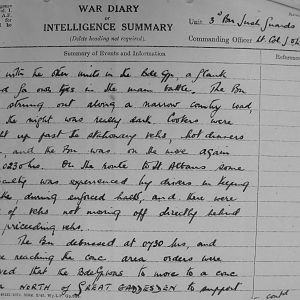 WAR DIARY
or
INTELLIGENCE SUMMARY
(Delete heading not required).
Unit. 3rd Bn Irish Guards
Commanding Officer Lt. Col J
Summary of Events and Information
with the other units in the Bde Gp, a flank
in the main battle. The Bn
strung out along a narrow country road
the night was really dark. Cookers were
up past the stationary vehs, hot dinners
, and the Bn was on the move again
0230 hrs. On the route to St. Albans some
was experienced by drivers in keeping
during enforced halts, and there were
of vehs not moving off directly behind
preceeding vehs.
The Bn debussed at 0730 hrs, and
reaching the conc area orders were
that the Bde Gp was to move to a conc
NORTH of GREAT GADDESDEN to support
contd